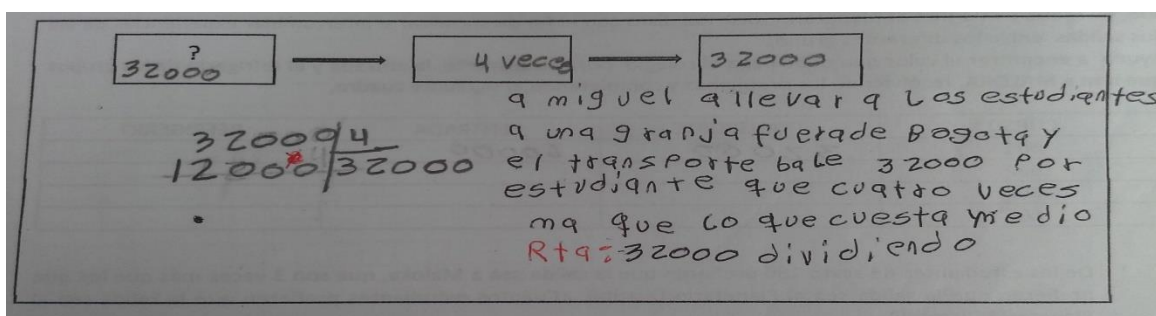 ?
32000
4 veces
32000
32000 4
12000 32000
a miguel allevar a Los estudiantes
a una granja fuerade Bogota y
el transporte bale 32000 por
estudiante que cuatro veces
ma que lo que cuesta medio
Rta: 32000 dividiendo